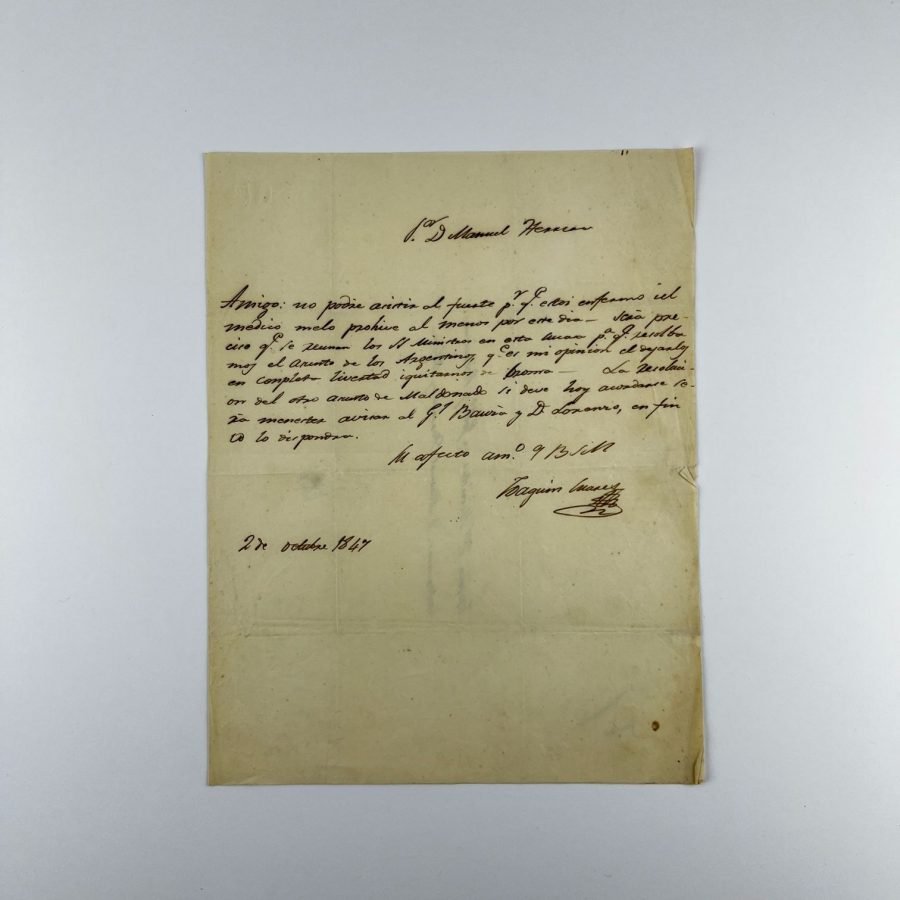 S.or D Manuel Herrera
Amigo: no podre asistir al fuerte p.r q.e estoi enfermo iel
médico melo prohive al menos por este dia — Será pre-
ciso q.e se reunan los SS Ministros en esta p.a q.e resolba
mos el asunto de los Argentinos, y es mi opinion el dejarlos
en completa livertad iquitarnos de broma — La resoluci-
on del otro asunto de Maldonado si deve hoy acordarse se-
rá menester avisar al G.l Bauzá y D. Lorenzo, en fin
lo dispondra.
Su afecto am.o q B S M
Joaquin Suarez
2 de octubre 1847